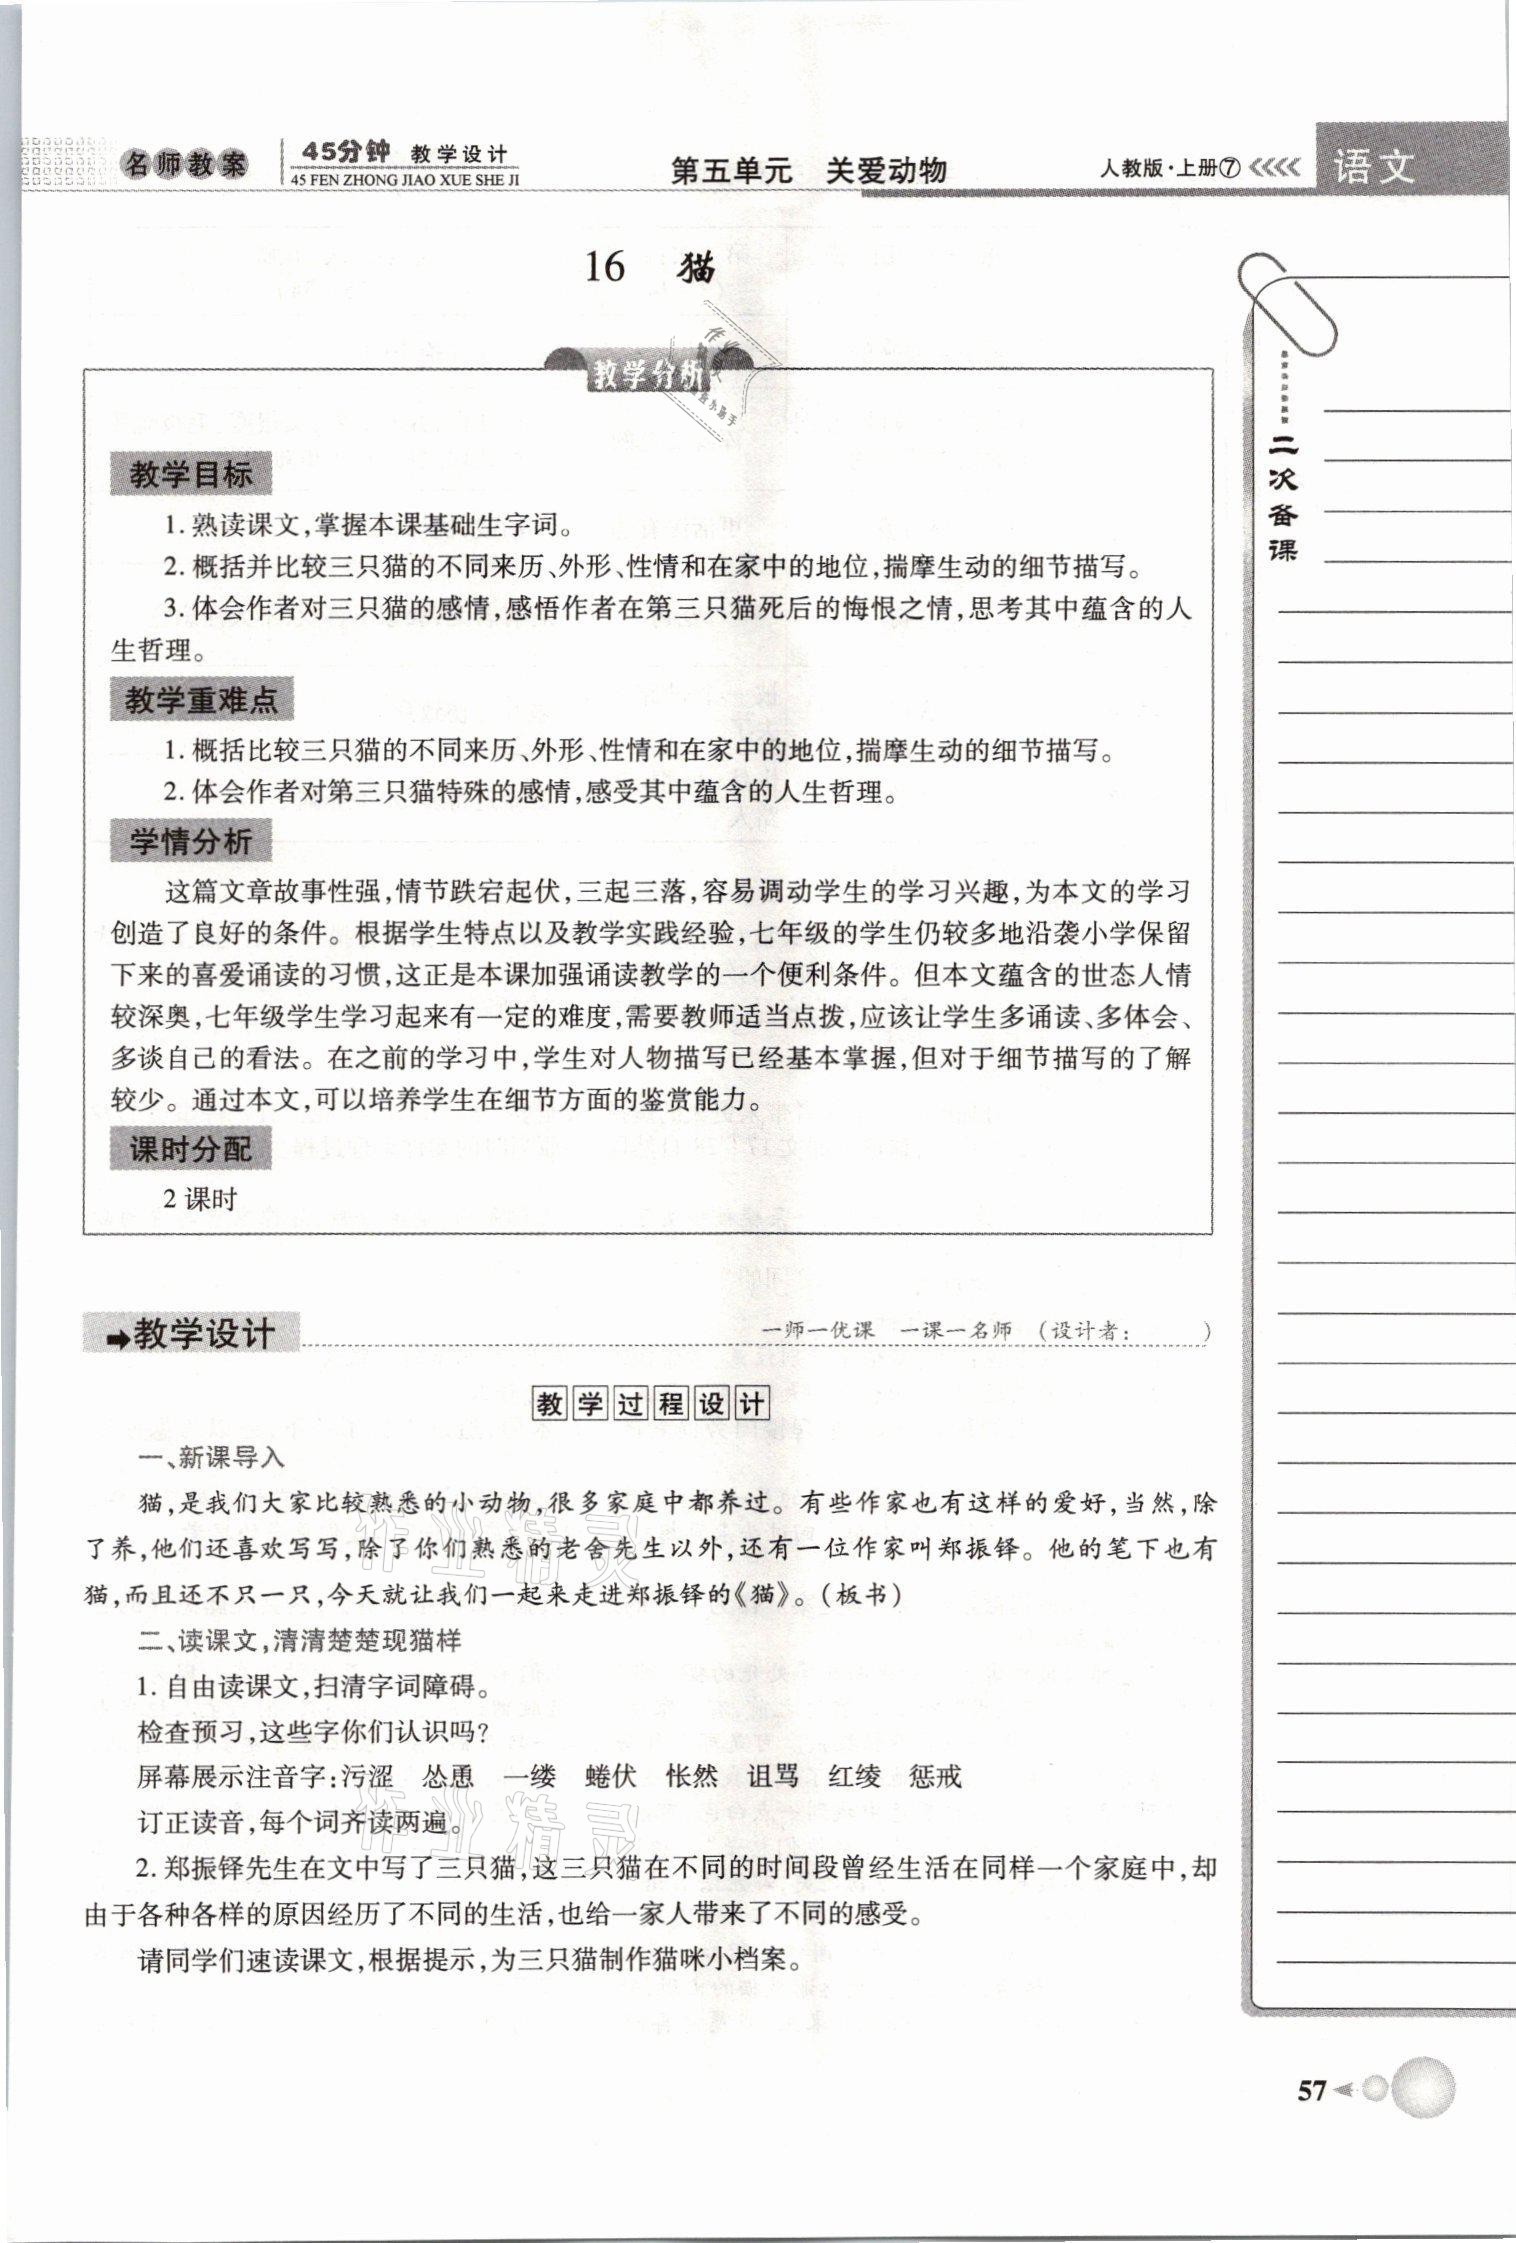 名师教案
45分钟 教学设计
45 FEN ZHONG JIAO XUE SHE JI
第五单元 关爱动物
人教版·上册⑦
语文
16 猫
教学分析
教学目标
1. 熟读课文,掌握本课基础生字词。
2. 概括并比较三只猫的不同来历、外形、性情和在家中的地位,揣摩生动的细节描写。
3. 体会作者对三只猫的感情,感悟作者在第三只猫死后的悔恨之情,思考其中蕴含的人
生哲理。
教学重难点
1. 概括比较三只猫的不同来历、外形、性情和在家中的地位,揣摩生动的细节描写。
2. 体会作者对第三只猫特殊的感情,感受其中蕴含的人生哲理。
学情分析
这篇文章故事性强,情节跌宕起伏,三起三落,容易调动学生的学习兴趣,为本文的学习
创造了良好的条件。根据学生特点以及教学实践经验,七年级的学生仍较多地沿袭小学保留
下来的喜爱诵读的习惯,这正是本课加强诵读教学的一个便利条件。但本文蕴含的世态人情
较深奥,七年级学生学习起来有一定的难度,需要教师适当点拨,应该让学生多诵读、多体会、
多谈自己的看法。在之前的学习中,学生对人物描写已经基本掌握,但对于细节描写的了解
较少。通过本文,可以培养学生在细节方面的鉴赏能力。
课时分配
2 课时
教学设计
一师一优课 一课一名师 (设计者: )
教学过程设计
一、新课导入
猫,是我们大家比较熟悉的小动物,很多家庭中都养过。有些作家也有这样的爱好,当然,除
了养,他们还喜欢写写,除了你们熟悉的老舍先生以外,还有一位作家叫郑振铎。他的笔下也有
猫,而且还不只一只,今天就让我们一起来走进郑振铎的《猫》。(板书)
二、读课文,清清楚楚现猫样
1. 自由读课文,扫清字词障碍。
检查预习,这些字你们认识吗?
屏幕展示注音字:污涩 怂恿 一缕 蜷伏 怅然 诅骂 红绫 惩戒
订正读音,每个词齐读两遍。
2. 郑振铎先生在文中写了三只猫,这三只猫在不同的时间段曾经生活在同样一个家庭中,却
由于各种各样的原因经历了不同的生活,也给一家人带来了不同的感受。
请同学们速读课文,根据提示,为三只猫制作猫咪小档案。
二次备课
57
作业精灵
作业精灵